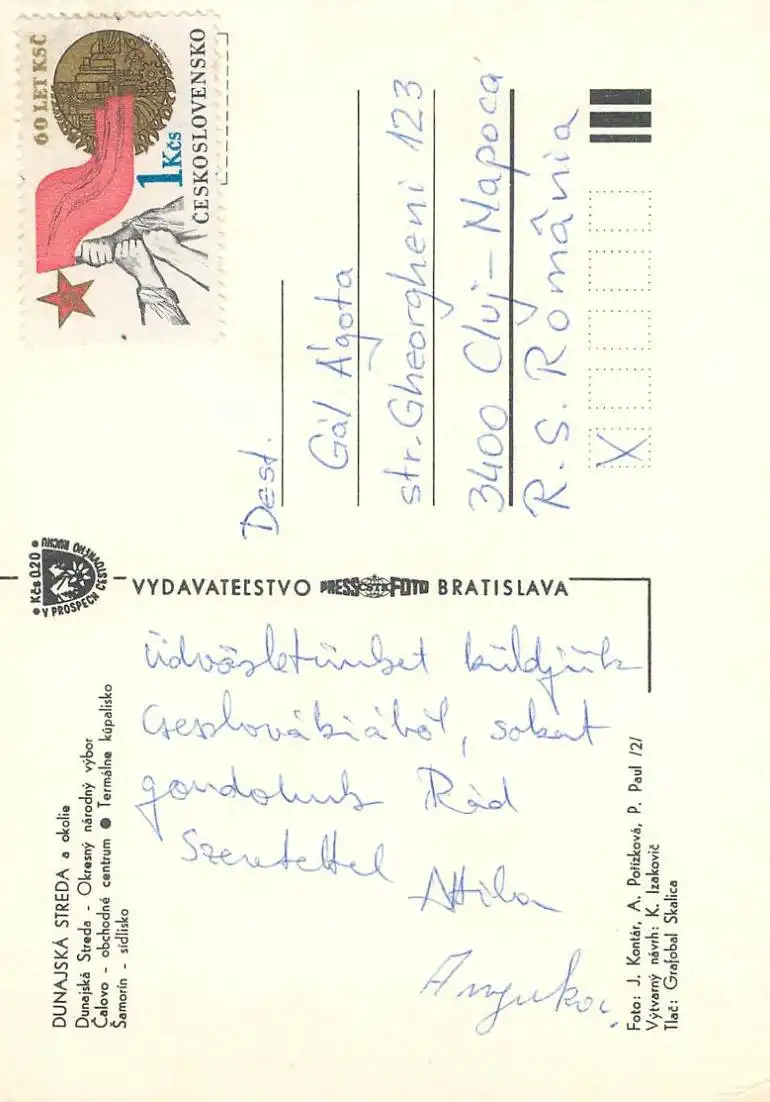 60 LET KSČ
1 Kčs
ČESKOSLOVENSKO
Dest.
Gál Ágota
str. Gheorgheni 123
3400 Cluj-Napoca
R.S. România
X
• Kčs 0.20 •
V PROSPECH CESTOVNÉHO RUCHU
VYDAVATEĽSTVO PRESSFOTO BRATISLAVA
Üdvözletünket küldjük
Csehszlovákiából, sokat
gondolunk Rád
Szeretettel
Attila
DUNAJSKÁ STREDA a okolie
Dunajská Streda - Okresný národný výbor
Čalovo - obchodné centrum ● Termálne kúpalisko
Šamorín - sídlisko
Foto: J. Kontár, A. Pořízková, P. Paul /2/
Výtvarný návrh: K. Izakovič
Tlač: Grafobal Skalica